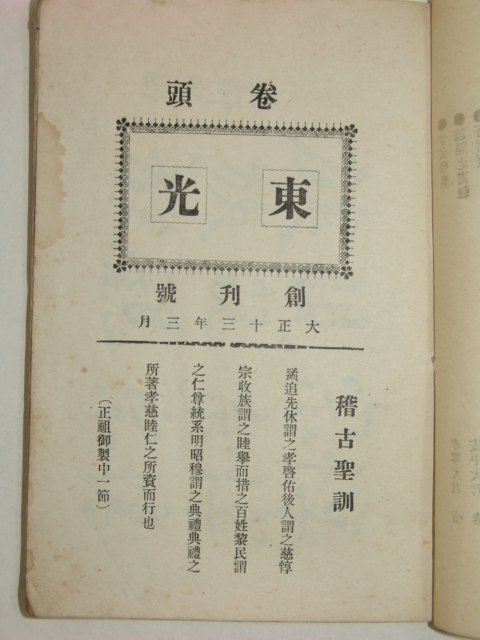 卷頭
東光
創刊號
大正十三年三月
稽古聖訓
遹追先休謂之孝啓佑後人謂之慈惇
宗收族謂之睦擧而措之百姓黎民謂
之仁尊統系明昭穆謂之典禮典禮之
所著孝慈睦仁之所賚而行也
(正祖御製中一節)